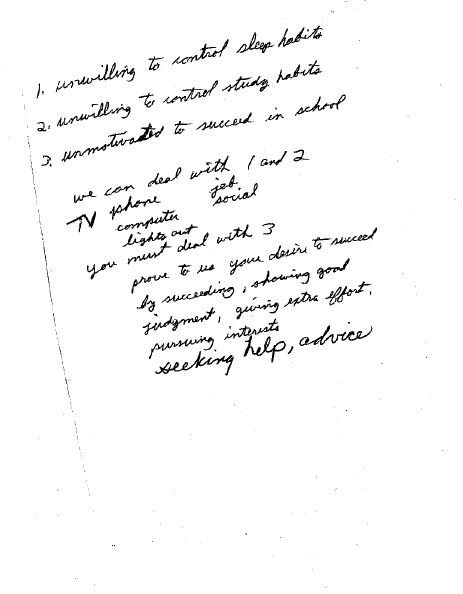 1. unwilling to control sleep habits
2. unwilling to control study habits
3. unmotivated to succeed in school
we can deal with 1 and 2
TV phone job
computer social
lights out
you must deal with 3
prove to us your desire to succeed
by succeeding, showing good
judgment, giving extra effort,
pursuing interests
seeking help, advice